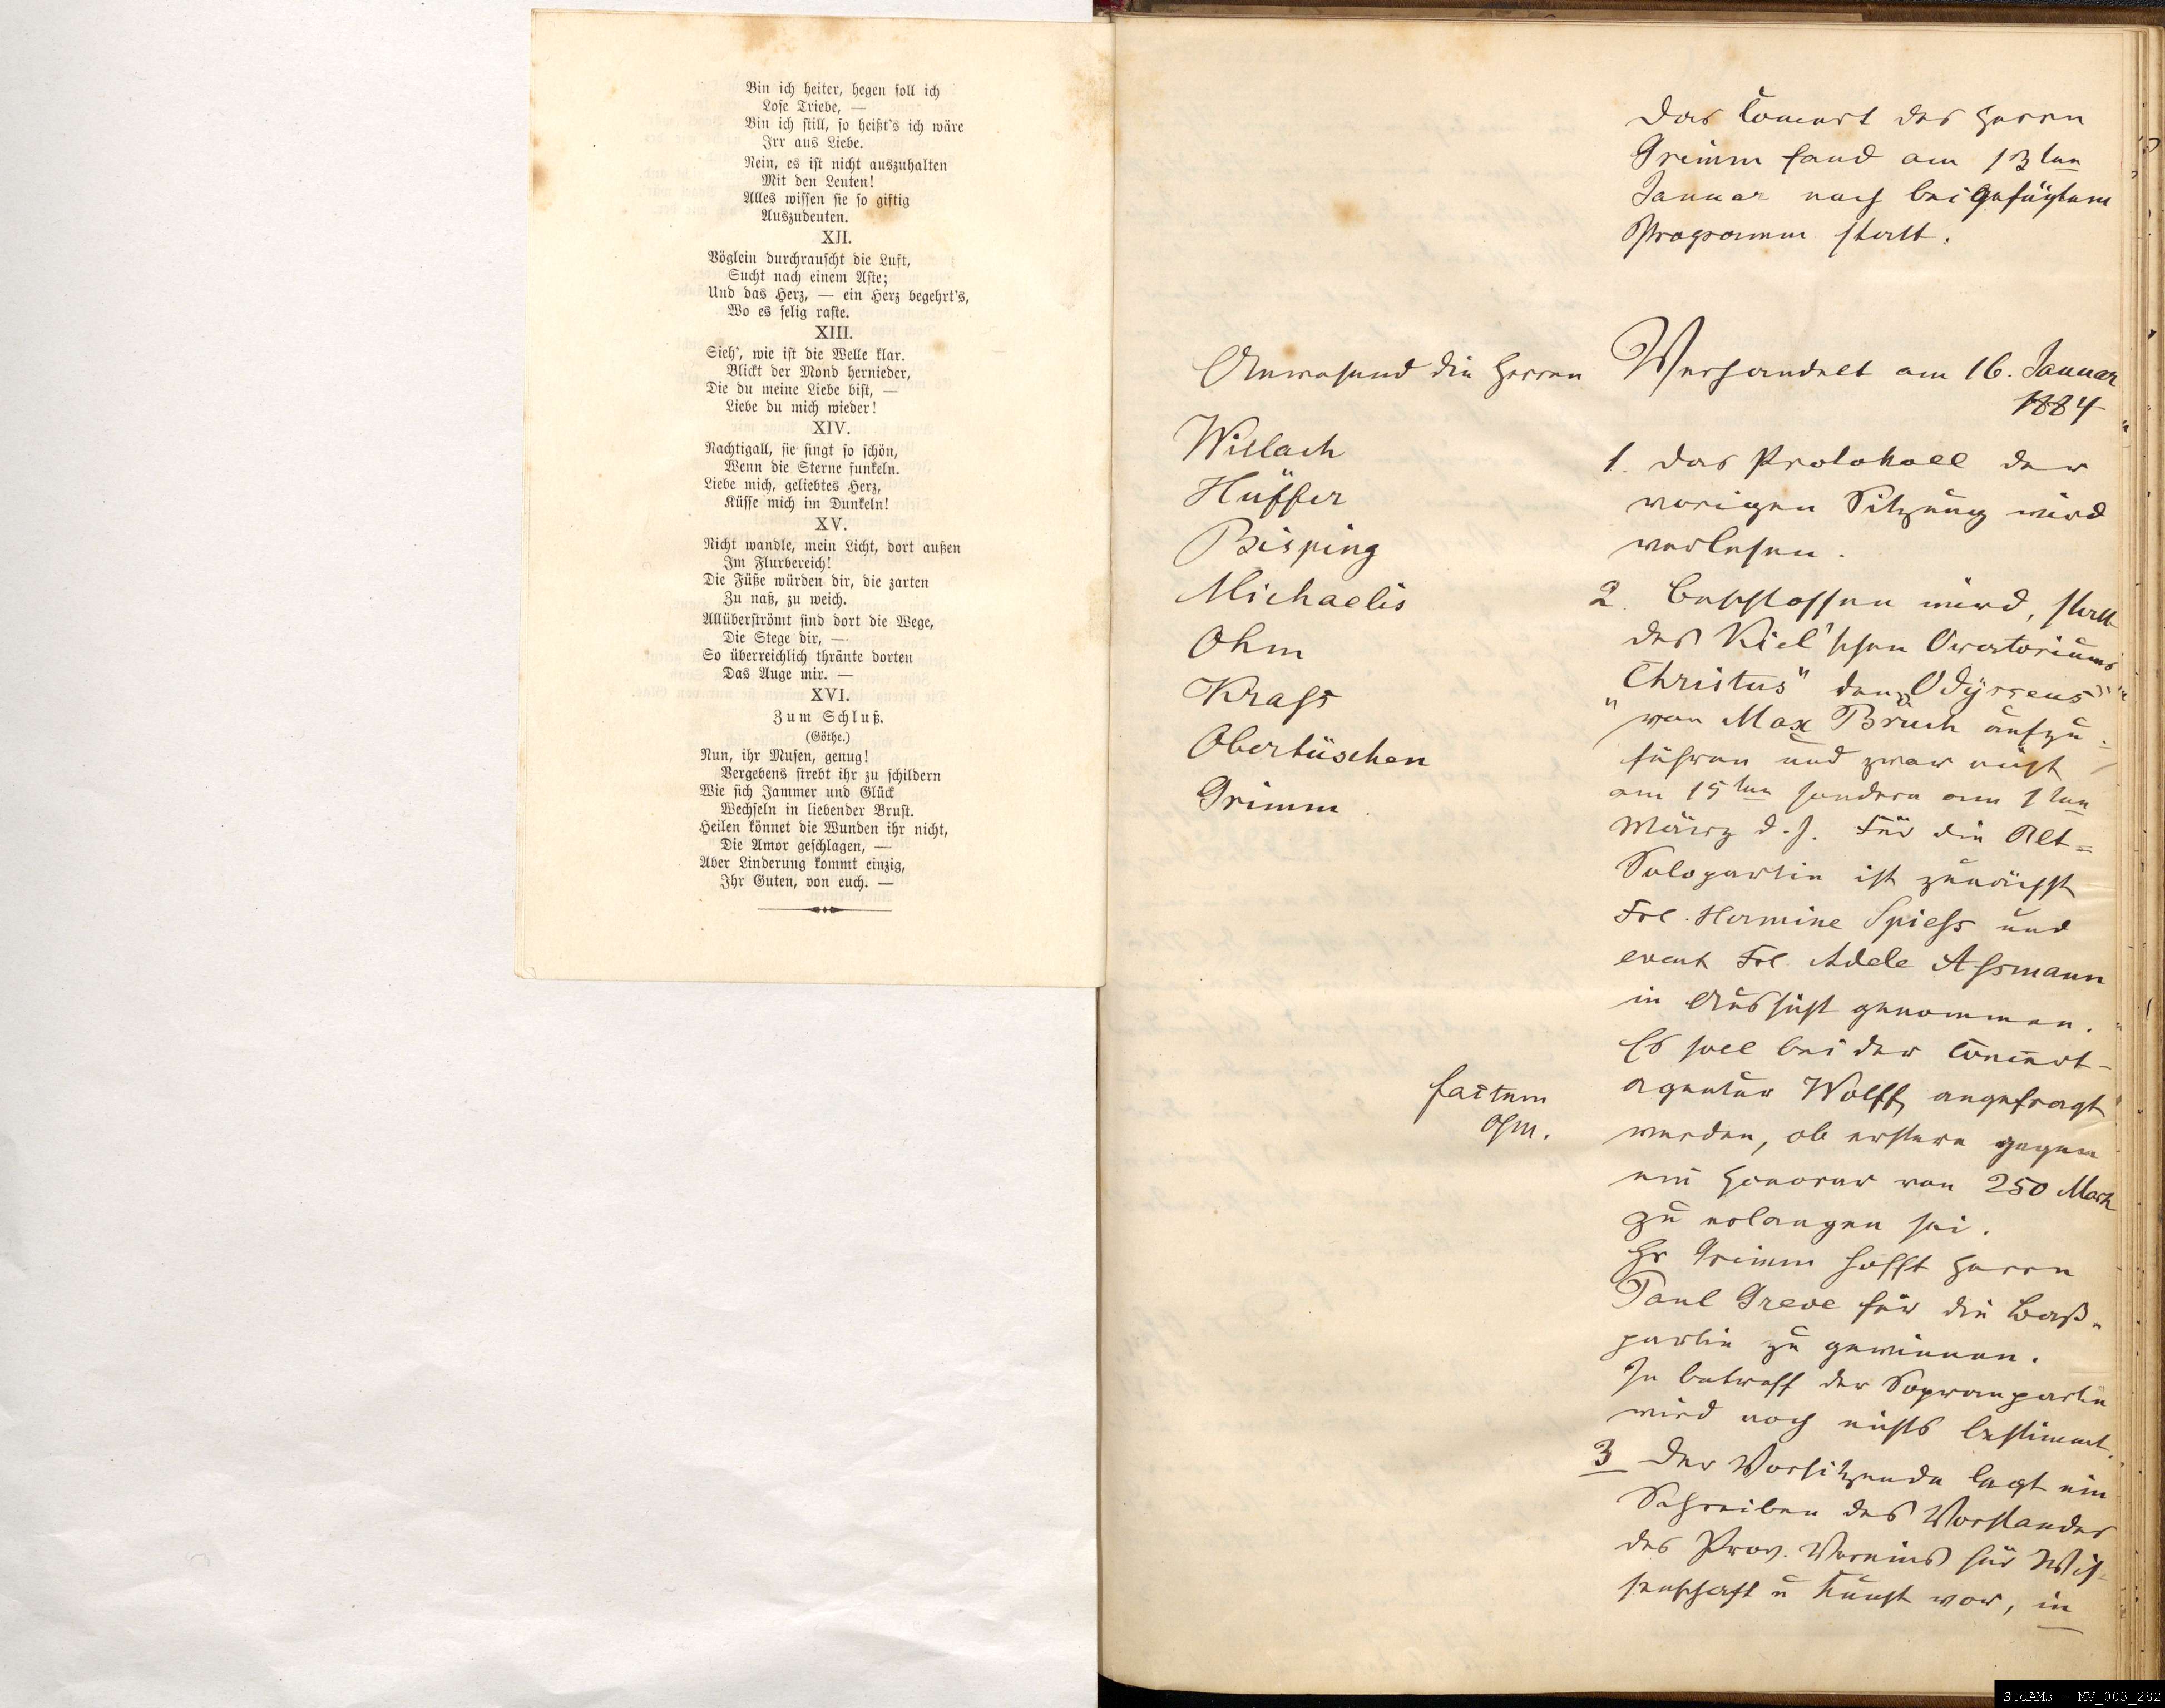 Bin ich heiter, hegen soll ich
Lose Triebe, —
Bin ich still, so heißt's ich wäre
Irr aus Liebe.
Nein, es ist nicht auszuhalten
Mit den Leuten!
Alles wissen sie so giftig
Auszudeuten.
XII.
Vöglein durchrauscht die Luft,
Sucht nach einem Aste;
Und das Herz, — ein Herz begehrt's,
Wo es selig raste.
XIII.
Sieh', wie ist die Welle klar.
Blickt der Mond hernieder,
Die du meine Liebe bist, —
Liebe du mich wieder!
XIV.
Nachtigall, sie singt so schön,
Wenn die Sterne funkeln.
Liebe mich, geliebtes Herz,
Küsse mich im Dunkeln!
XV.
Nicht wandle, mein Licht, dort außen
Im Flurbereich!
Die Füße würden dir, die zarten
Zu naß, zu weich.
Allüberströmt sind dort die Wege,
Die Stege dir, —
So überreichlich thränte dorten
Das Auge mir. —
XVI.
Zum Schluß.
(Göthe.)
Nun, ihr Musen, genug!
Vergebens strebt ihr zu schildern
Wie sich Jammer und Glück
Wechseln in liebender Brust.
Heilen könnet die Wunden ihr nicht,
Die Amor geschlagen, —
Aber Linderung kommt einzig,
Ihr Guten, von euch. —
Das Concert des Herrn
Grimm fand am 13ten
Januar nach beigefügtem
Programm statt.
Anwesend die Herren
Wislach
Hüffer
Bisping
Michaelis
Ohm
Krass
Obertüschen
Grimm
factum
Ohm.
Verhandelt am 16. Januar
1884
1. Das Protokoll der
vorigen Sitzung wird
verlesen.
2. Beschlossen wird, statt
des Kiel'schen Oratoriums
„Christus" den „Odysseus"
von Max Bruch aufzu-
führen und zwar nicht
am 15ten sondern am 1ten
März d. J. Für die Alt-
Solopartie ist zunächst
Frl. Hermine Spiess und
event Frl. Adele Assmann
in Aussicht genommen.
Es soll bei der Concert-
agentur Wolff angefragt
werden, ob erstere gegen
ein Honorar von 250 Mark
zu erlangen sei.
Hr Grimm hofft Herrn
Paul Greve für die Baß-
partie zu gewinnen.
In betreff der Sopranpartie
wird noch nichts bestimmt.
3 Der Vorsitzende legt ein
Schreiben des Vorstandes
des Prov. Vereins für Wis-
senschaft u Kunst vor, in
StdAMs - MV_003_282